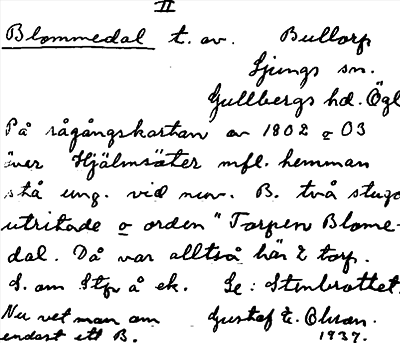 II
Blommedal t. av. Bullorp
Ljungs sn.
Gullbergs hd. Ögl
På rågångskartan av 1802 o 03
över Hjälmsäter mfl. hemman
stå ung. vid nuv. B. två stugo
utritade o orden "Torpen Blome-
dal. Då var alltså här 2 torp.
S. om Stp å ek. Se: Stenbrottet.
Nu vet man om
endast ett B.
Gustaf E. Olsson.
1937.